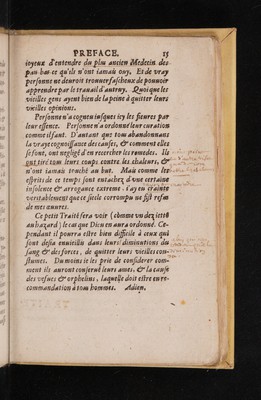 PREFACE. 15
ioyeux d'entendre du plus ancien Medecin des
pau ce qu'ils n'ont iamais ouy. Et de vray
personne ne deuroit trouuer fascheux de pouuoir
apprendre par le trauail d'autruy. Quoi que les
vieilles gens ayent bien de la peine à quitter leurs
vieilles opinions.
Personne n'a cogneu iusques icy les fieures par
leur essence. Personne n'a ordonné leur curation
comme il faut. D'autant que tous abandonnans
la vraye cognoissance des causes, & comment elles
se font, ont negligé d'en rechercher les remedes. Ils
ont tiré tous leurs coups contre les chaleurs, &
n'ont iamais touché au but. Mais comme les
esprits de ce temps sont entachez d'une certaine
insolence & arrogance extreme, i'ay eu crainte
veritablement que ce siecle corrompu ne fist refus
de mes œuures.
Ce petit Traité fera voir (comme un dez ietté
au hazard) le cas que Dieu en aura ordonné. Ce-
pendant il pourra estre bien difficile à ceux qui
sont desia enuieillis dans leurs diminutions du
sang & des forces, de quitter leurs vieilles cou-
stumes. Du moins ie les prie de considerer com-
ment ils auront conserué leurs ames, & la cause
des vefues & orphelins, laquelle doit estre en re-
commandation à tous hommes. Adieu.